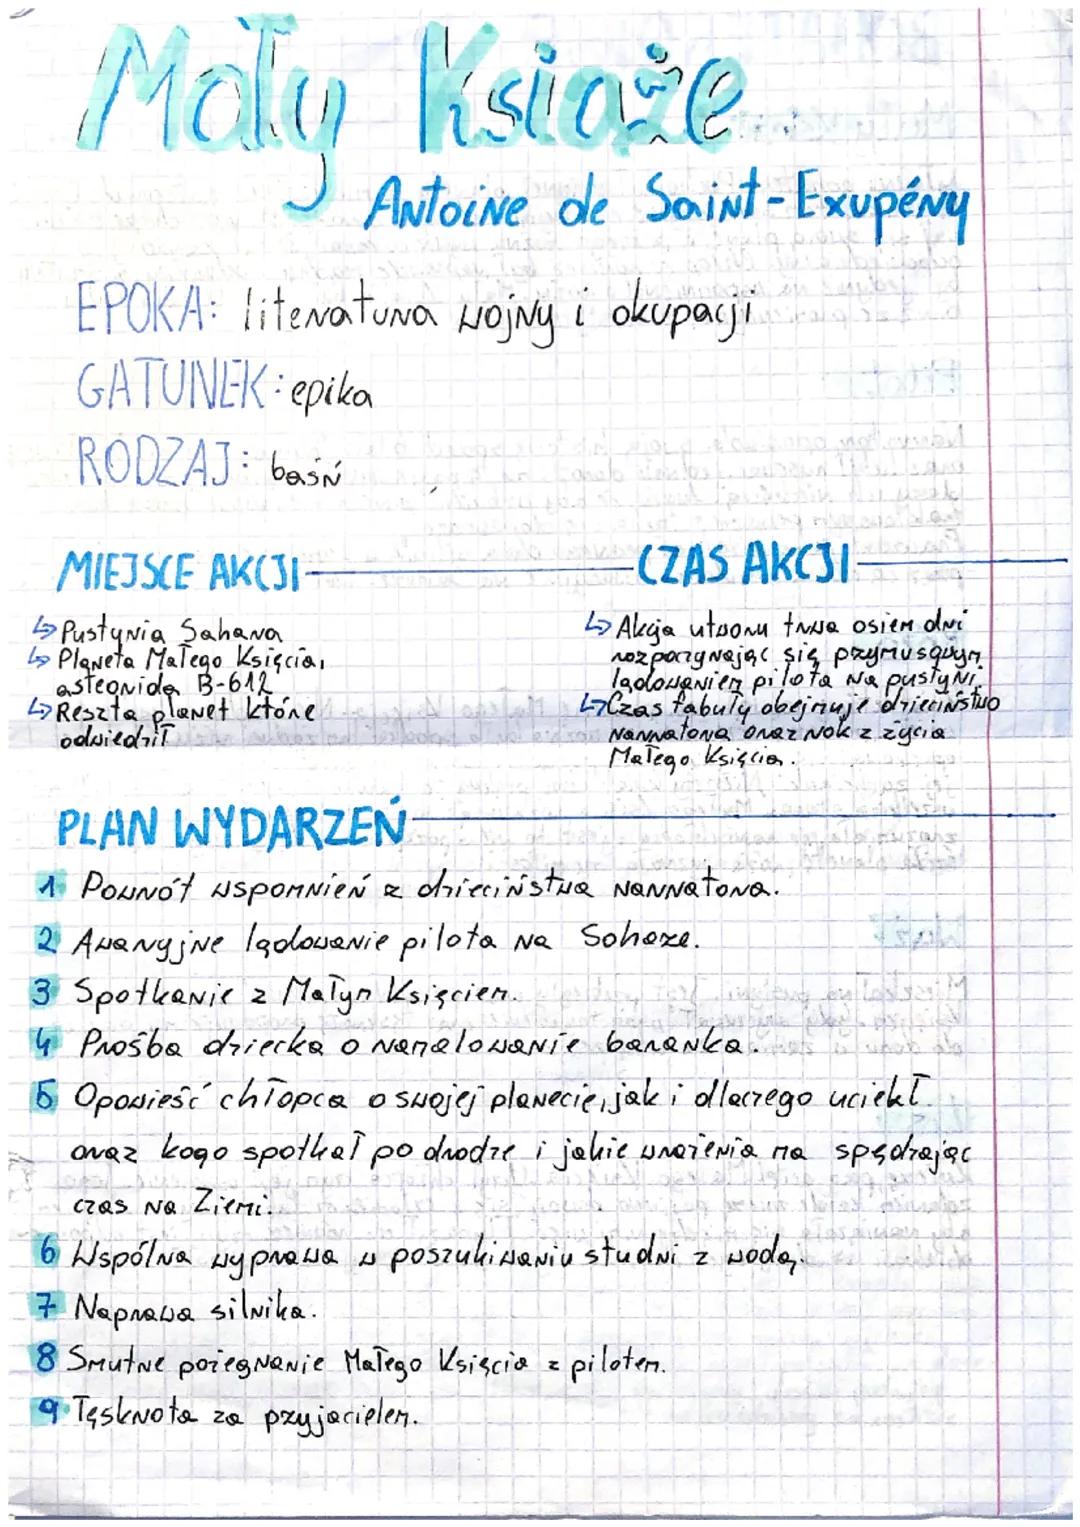 Mały Książe
Antoine de Saint-Exupény
EPOKA: literatura wojny i okupacji
GATUNEK: epika
RODZAJ: baśń
MIEJSCE AKCJI
↳ Pustynia Sahara
↳ Planeta Małego Księcia,
asteroida B-612
↳ Reszta planet które
odwiedził
CZAS AKCJI
↳ Akcja utworu trwa osiem dni
rozpoczynając się przymusowym
lądowaniem pilota na pustyni.
↳ Czas fabuły obejmuje dzieciństwo
narratora oraz rok z życia
Małego Księcia.
PLAN WYDARZEŃ
1 Powrót wspomnień z dzieciństwa narratora.
2 Awaryjne lądowanie pilota na Saharze.
3 Spotkanie z Małym Księciem.
4 Prośba dziecka o namalowanie baranka.
5 Opowieść chłopca o swojej planecie, jak i dlaczego uciekł.
oraz kogo spotkał po drodze i jakie wrażenia ma spędzając
czas na Ziemi.
6 Wspólna wyprawa w poszukiwaniu studni z wodą.
7 Naprawa silnika.
8 Smutne pożegnanie Małego Księcia z pilotem.
9 Tęsknota za przyjacielem.